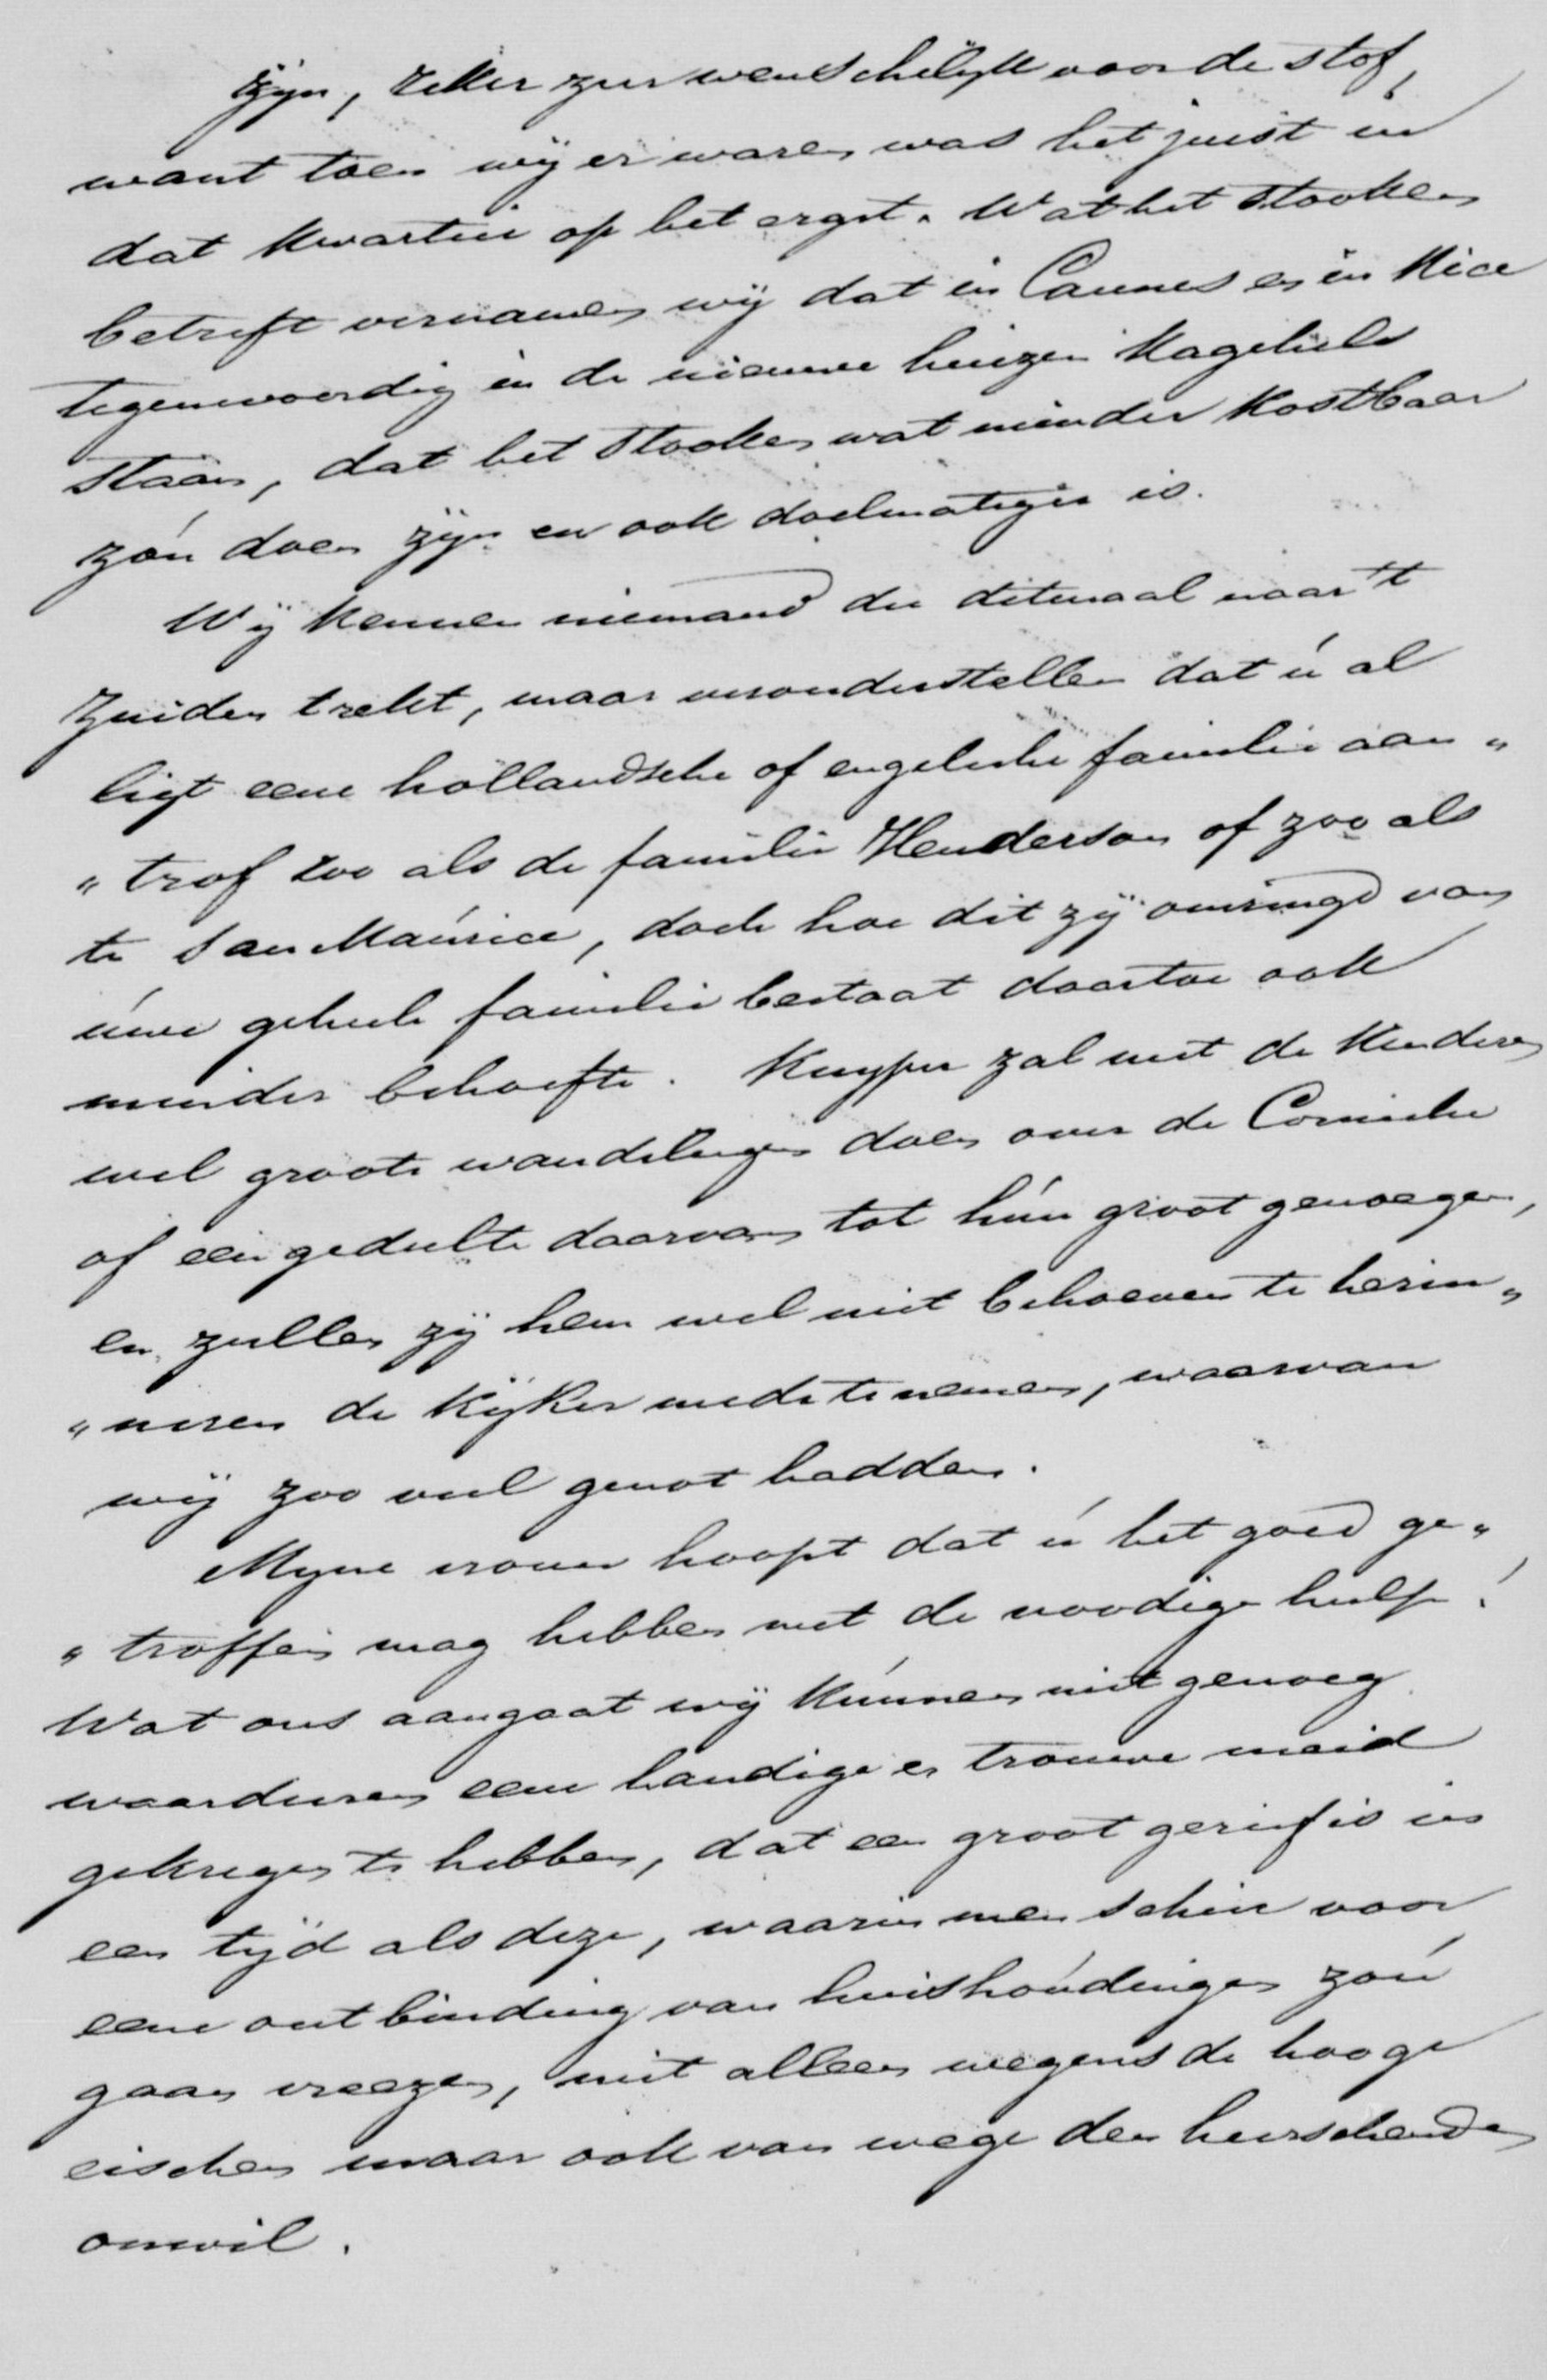 zijn, zeker zeer wenschelijk voor de stof,
want toen wij er waren was het juist in
dat kwartier op het ergst. Wat het stooken
betreft vernamen wij dat in Cannes en in Nice
tegenwoordig in de nieuwe huizen kagchels
staan, dat het stooken wat minder kostbaar
zou doen zijn en ook doelmatiger is.
Wij kennen niemand die ditmaal naar 't
Zuiden trekt, maar veronderstellen dat u al
ligt eene hollandsche of engelsche familie aan„
„trof zoo als de familie Henderson of zoo als
te San Maurice, doch hoe dit zij omringd van
uwe geheele familie bestaat daartoe ook
minder behoefte. Kuyper zal met de kinderen
wel groote wandelingen doen over de Corniche
of een gedeelte daarvan tot hun groot genoegen,
en zullen zij hem wel niet behoeven te herin„
„neren de kijker mede te nemen, waarvan
wij zoo veel genot hadden.
Mijne vrouw hoopt dat u het goed ge„
„troffen mag hebben met de noodige hulp!
Wat ons aangaat wij kunnen niet genoeg
waardeeren eene handige en trouwe meid
gekregen te hebben, dat een groot gerief is in
een tijd als deze, waarin men schier voor
eene ontbinding van huishoudingen zou
gaan vreezen, niet alleen wegens de hooge
eischen maar ook van wege den heerschenden
onwil.